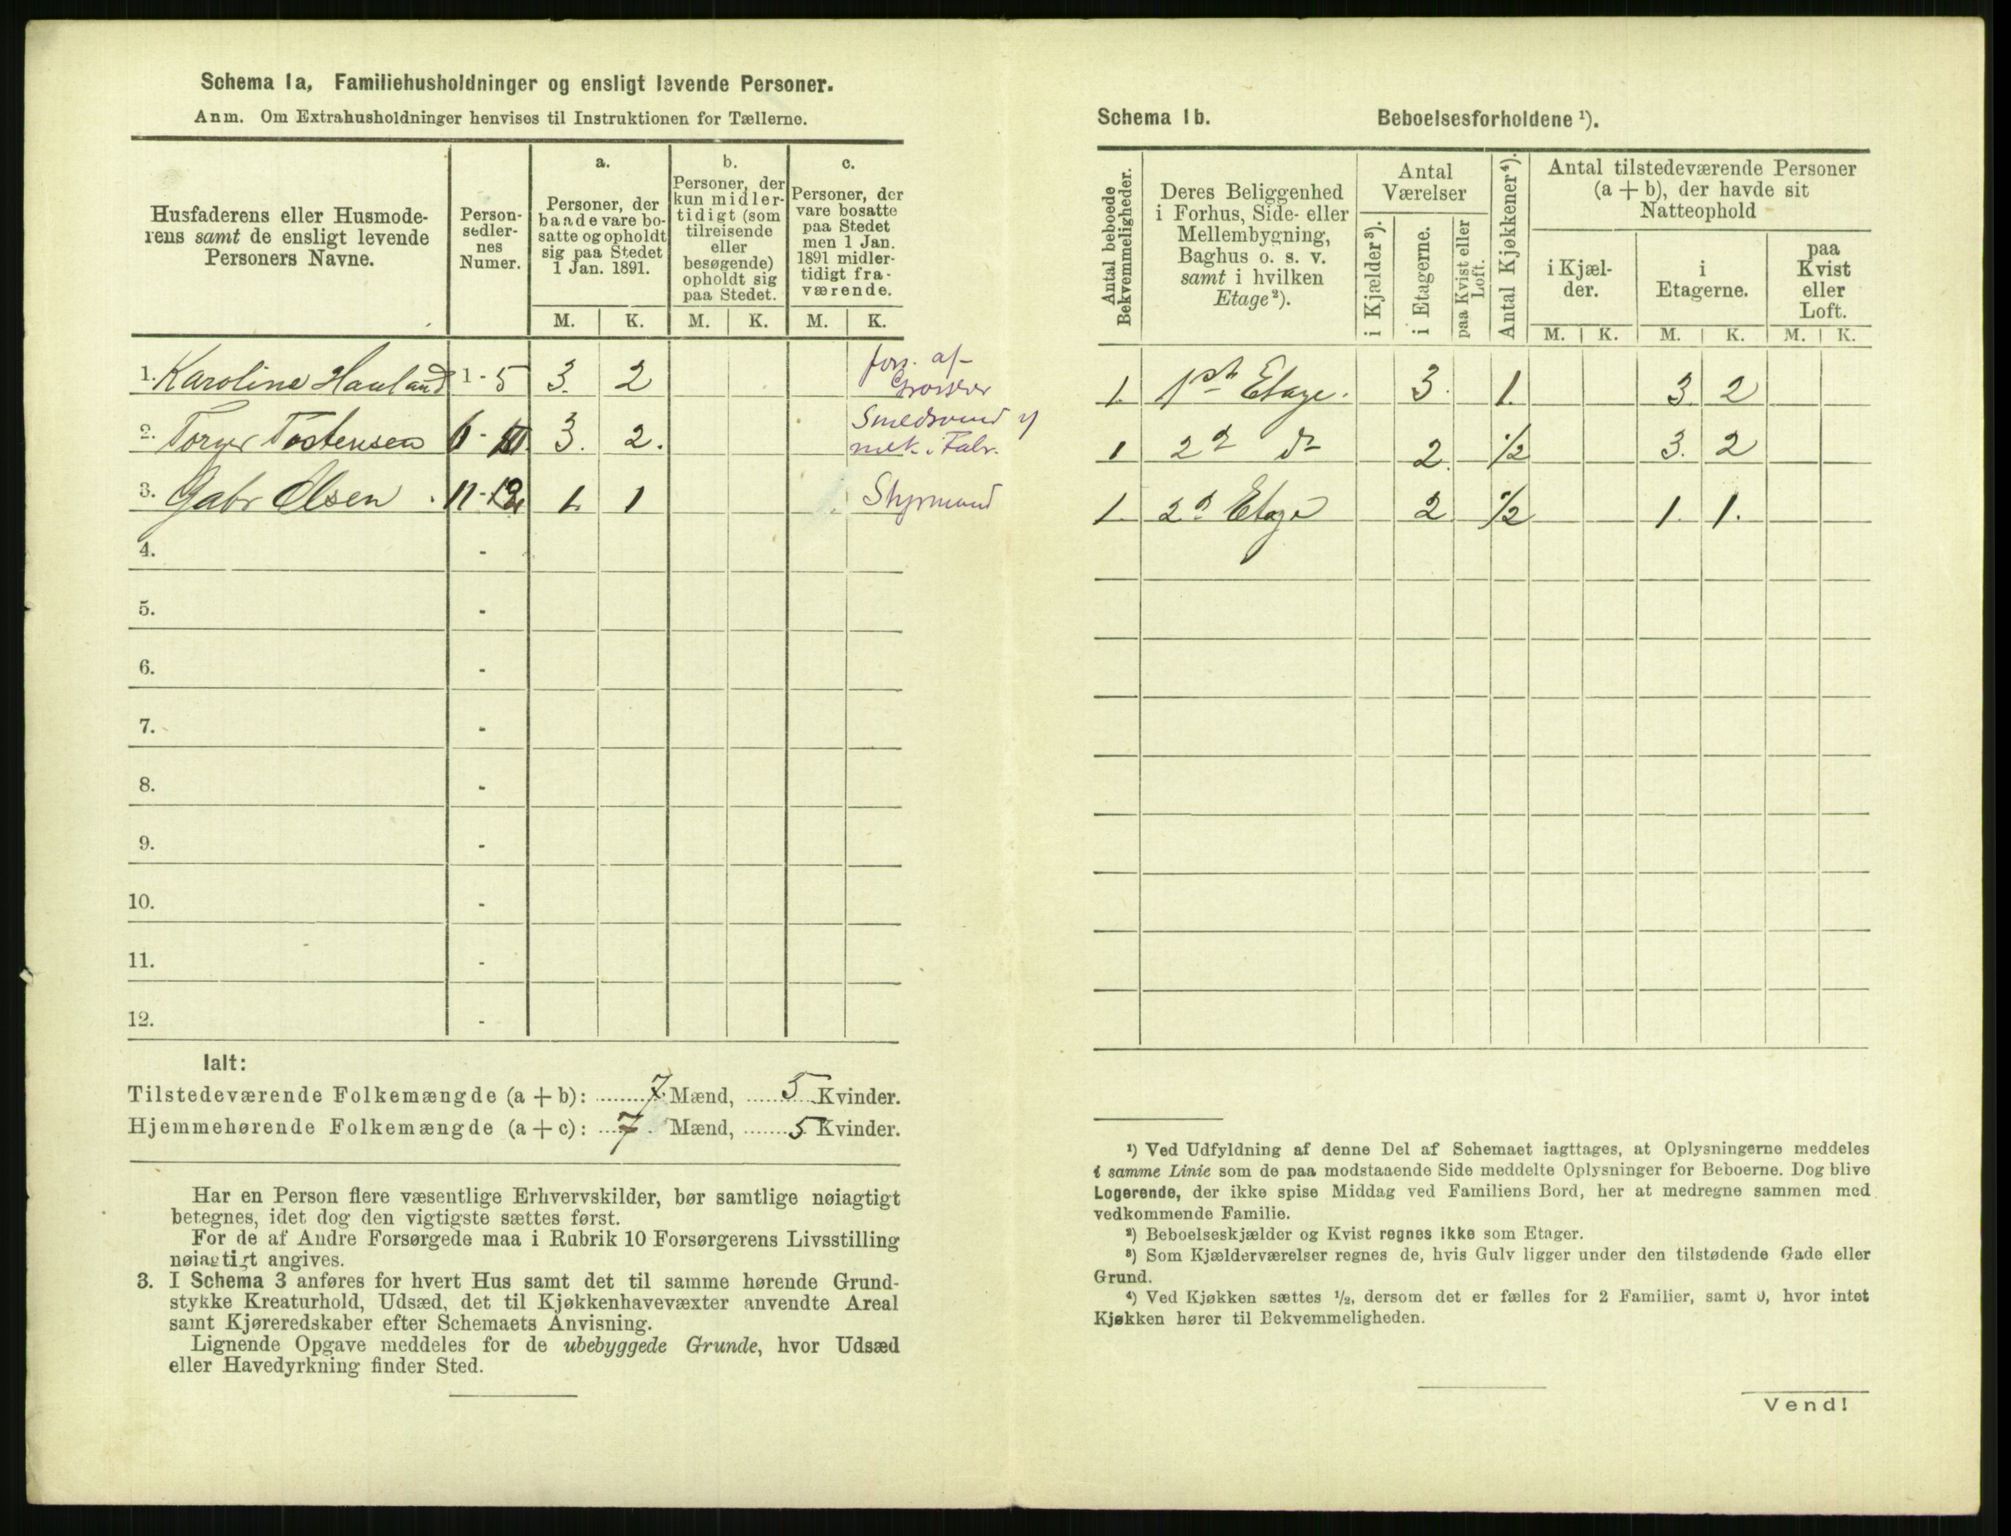 Schema 1a, Familiehusholdninger og ensligt levende Personer.
Anm. Om Extrahusholdninger henvises til Instruktionen for Tællerne.
Husfaderens eller Husmode-
rens samt de ensligt levende
Personers Navne.
Person-
sedler-
nes
Numer.
a.
Personer, der
baade vare bo-
satte og opholdt
sig paa Stedet
1 Jan. 1891.
b.
Personer, der
kun midler-
tidigt (som
tilreisende
eller
besøgende)
opholdt sig
paa Stedet.
c.
Personer, der
vare bosatte
paa Stedet
men 1 Jan.
1891 midler-
tidigt fra-
værende.
M. K. M. K. M. K.
1. Karoline Hauland 1 - 5 3. 2 fors. af
2. Torger Tostensen 6 - 10 3. 2. Smedsvend
mek. Fabr.
3. Gabr Olsen 11 - 12 1. 1 Styrmand
4. -
5. -
6. -
7. -
8. -
9. -
10. -
11. -
12. -
Ialt:
Tilstedeværende Folkemængde (a + b): 7 Mænd, 5 Kvinder.
Hjemmehørende Folkemængde (a + c): 7 Mænd, 5 Kvinder.
Har en Person flere væsentlige Erhvervskilder, bør samtlige nøiagtigt
betegnes, idet dog den vigtigste sættes først.
For de af Andre Forsørgede maa i Rubrik 10 Forsørgerens Livsstilling
nøiagtigt angives.
3. I Schema 3 anføres for hvert Hus samt det til samme hørende Grund-
stykke Kreaturhold, Udsæd, det til Kjøkkenhavevæxter anvendte Areal
samt Kjøreredskaber efter Schemaets Anvisning.
Lignende Opgave meddeles for de ubebyggede Grunde, hvor Udsæd
eller Havedyrkning finder Sted.
Schema 1b. Beboelsesforholdene ¹).
Antal beboede
Bekvemmeligheder.
Deres Beliggenhed
i Forhus, Side- eller
Mellembygning,
Baghus o. s. v.
samt i hvilken
Etage ²).
Antal
Værelser
i Kjælder ³).
i Etagerne.
paa Kvist eller
Loft.
Antal Kjøkkener ⁴).
Antal tilstedeværende Personer
(a + b), der havde sit
Natteophold
i Kjæl-
der.
i
Etagerne.
paa
Kvist
eller
Loft.
M. K. M. K. M. K.
1. 1ste Etage. 3. 1. 3. 2
1 2d do 2 ½ 3. 2
1. 2d Etage 2 ½ 1. 1.
¹) Ved Udfyldning af denne Del af Schemaet iagttages, at Oplysningerne meddeles
i samme Linie som de paa modstaaende Side meddelte Oplysninger for Beboerne. Dog blive
Logerende, der ikke spise Middag ved Familiens Bord, her at medregne sammen med
vedkommende Familie.
²) Beboelseskjælder og Kvist regnes ikke som Etager.
³) Som Kjælderværelser regnes de, hvis Gulv ligger under den tilstødende Gade eller
Grund.
⁴) Ved Kjøkken sættes ½, dersom det er fælles for 2 Familier, samt 0, hvor intet
Kjøkken hører til Bekvemmeligheden.
Vend!